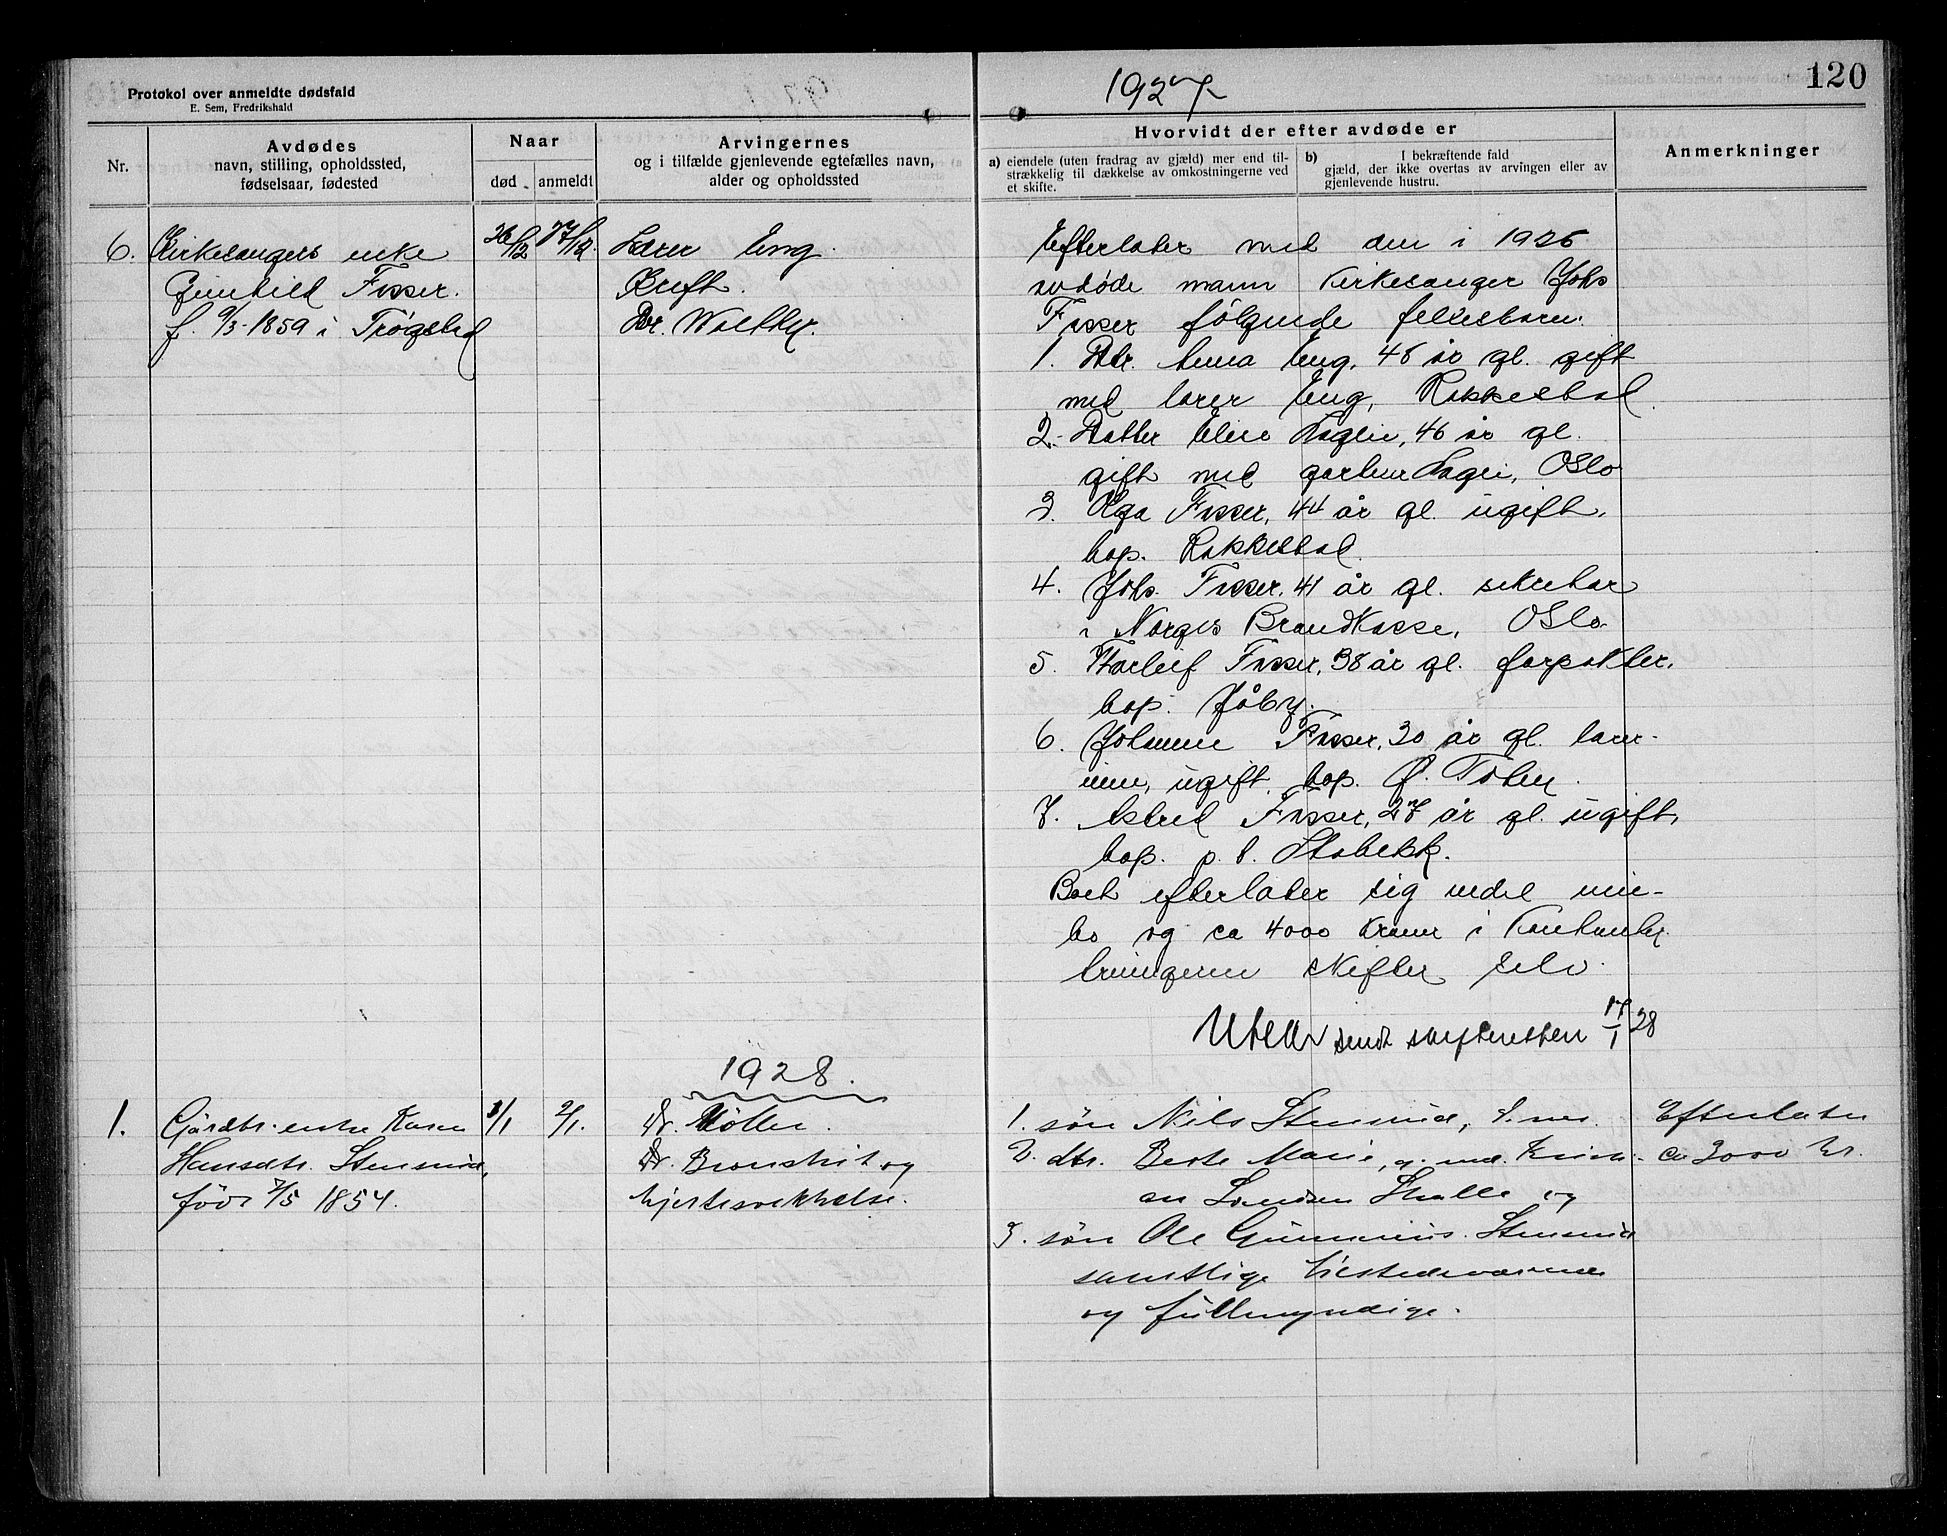 Protokol over anmeldte dødsfald
E. Sem, Fredrikshald
1927
120
Nr.
Avdødes
navn, stilling, opholdssted,
fødselsaar, fødested
Naar
død
anmeldt
Arvingernes
og i tilfælde gjenlevende egtefælles navn,
alder og opholdssted
Hvorvidt der efter avdøde er
a) eiendele (uten fradrag av gjæld) mer end til-
strækkelig til dækkelse av omkostningerne ved
et skifte.
b) I bekræftende fald
gjæld, der ikke overtas av arvingen eller av
gjenlevende hustru.
Anmerkninger
6. Kirkesangers enke
Gunhild Fosser.
f. 9/3-1859 i Trøgstad
26/12 27/12.
Lærer Eng.
Kreft.
Dr. Walther.
Efterlater med den i 1926
avdøde mann kirkesanger Johs
Fosser følgende fellesbarn:
1. Dtr. Anna Eng, 48 år gl. gift
med lærer Eng, Rakkestad.
2. Datter Elise 46 år gl.
gift med Oslo
3. Olga Fosser, 44 år gl. ugift,
bop. Rakkestad.
4. Johs. Fosser, 41 år gl. sekretær
i Norges Brandkasse, Oslo
5. Fosser, 38 år gl. forpakter,
bop. Jåby.
6. Johanne Fosser, 30 år gl. lærer-
inne, ugift, bop. Ø. Toten.
7. Astrid Fosser, 27 år gl. ugift,
bop. p. t. Stabekk.
Boet efterlater sig endel inn-
bo og ca 4000 kroner i kontanter
Arvingerne skifter selv.
Utskr sendt skifteretten 17/1 28
1928.
1. Gårdbr. enke Karen
Hansdtr. Stensrud,
født 7/5 1854.
1/1 2/1.
Dr. Møller.
Dr. Bronchit og
hjertesvekkelse.
1. søn Nils Stensrud,
2. dtr. Berte Marie, g. med
og
3. søn Ole Gunnerius Stensrud
samtlige tilstedeværende
og fuldmyndige.
Efterlater
ca 3000 kr.